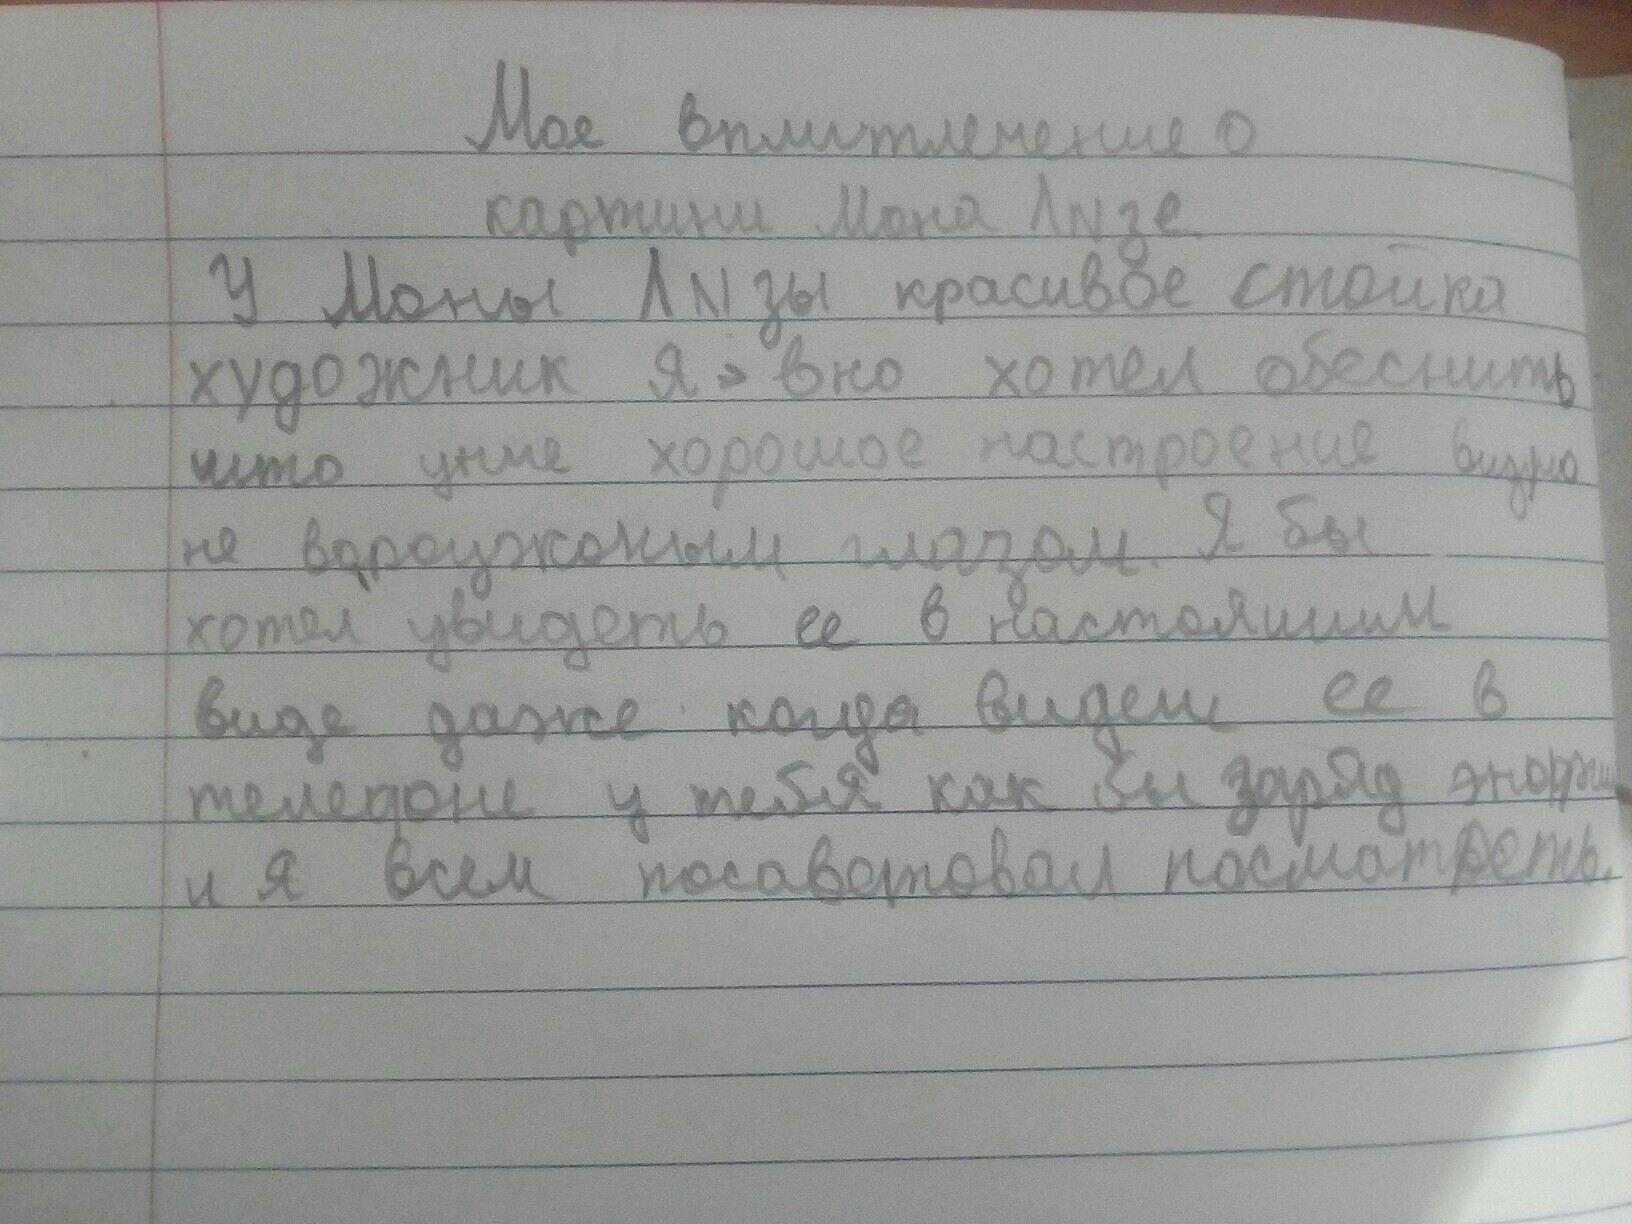 Мое вплитлемение о
картини Мона Лизе
У Моны Лизы красивое стойка
художник я вно хотел обеснить
што уние хорошое настроение видно
не вароужоным глазом. Я бы
хотел увидеть ее в настояшим
виде даже когда видеш ее в
телефоне у тебя как бы заряд эноргии
и я всем посаветовал посматреть.